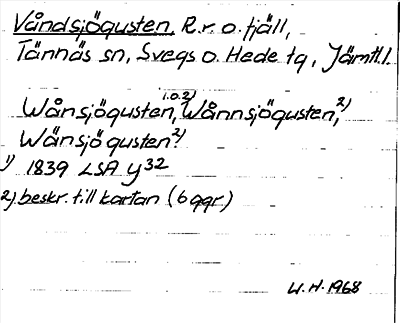 Våndsjögusten, R.r. o. fjäll,
Tännäs sn, Svegs o. Hede tg, Jämtl.l.
Wånsjögusten,1.o.2) Wånnsjögusten,2)
Wänsjögusten2)
1) 1839 LSA y32
2) beskr. till kartan (6 ggr)
W.H. 1968